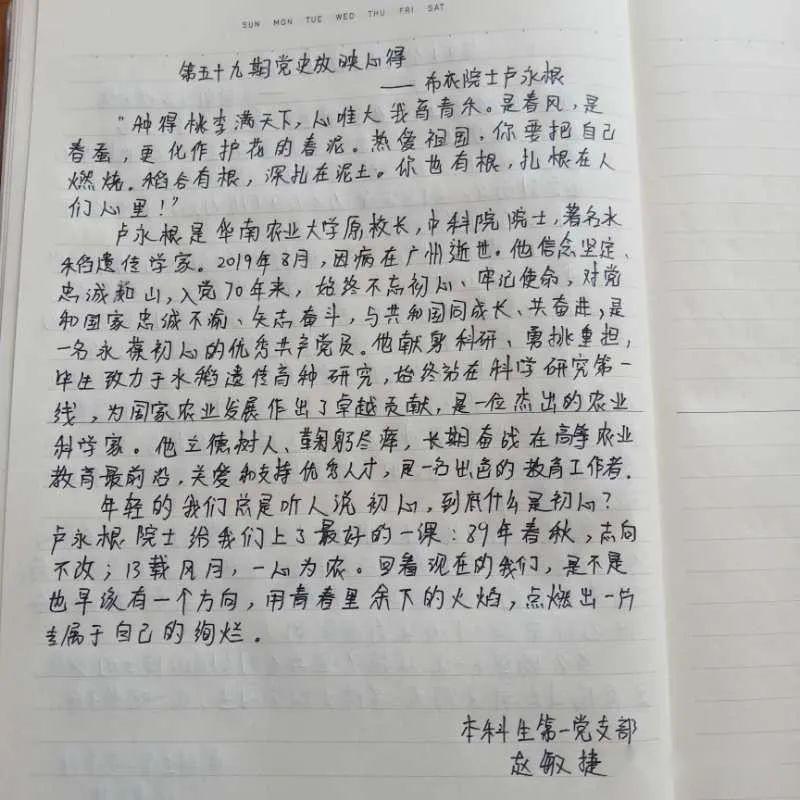 SUN MON TUE WED THU FRI SAT
第五十九期党史放映心得
—— 布衣院士卢永根
"种得桃李满天下,心唯大我育青禾。是春风,是
春蚕,更化作护花的春泥。热爱祖国,你要把自己
燃烧。稻谷有根,深扎在泥土。你也有根,扎根在人
们心里!"
卢永根是华南农业大学原校长,中科院院士,著名水
稻遗传学家。2019年8月,因病在广州逝世。他信念坚定、
忠诚如山,入党70年来,始终不忘初心、牢记使命,对党
和国家忠诚不渝、矢志奋斗,与共和国同成长、共奋进,是
一名永葆初心的优秀共产党员。他献身科研、勇挑重担,
毕生致力于水稻遗传育种研究,始终站在科学研究第一
线,为国家农业发展作出了卓越贡献,是一位杰出的农业
科学家。他立德树人、鞠躬尽瘁,长期奋战在高等农业
教育最前沿,关爱和支持优秀人才,是一名出色的教育工作者。
年轻的我们总是听人说初心,到底什么是初心?
卢永根院士给我们上了最好的一课:89年春秋,志向
不改;13载风月,一心为农。回看现在的我们,是不是
也早该有一个方向,用青春里余下的火焰,点燃出一片
专属于自己的绚烂。
本科生第一党支部
赵敏捷